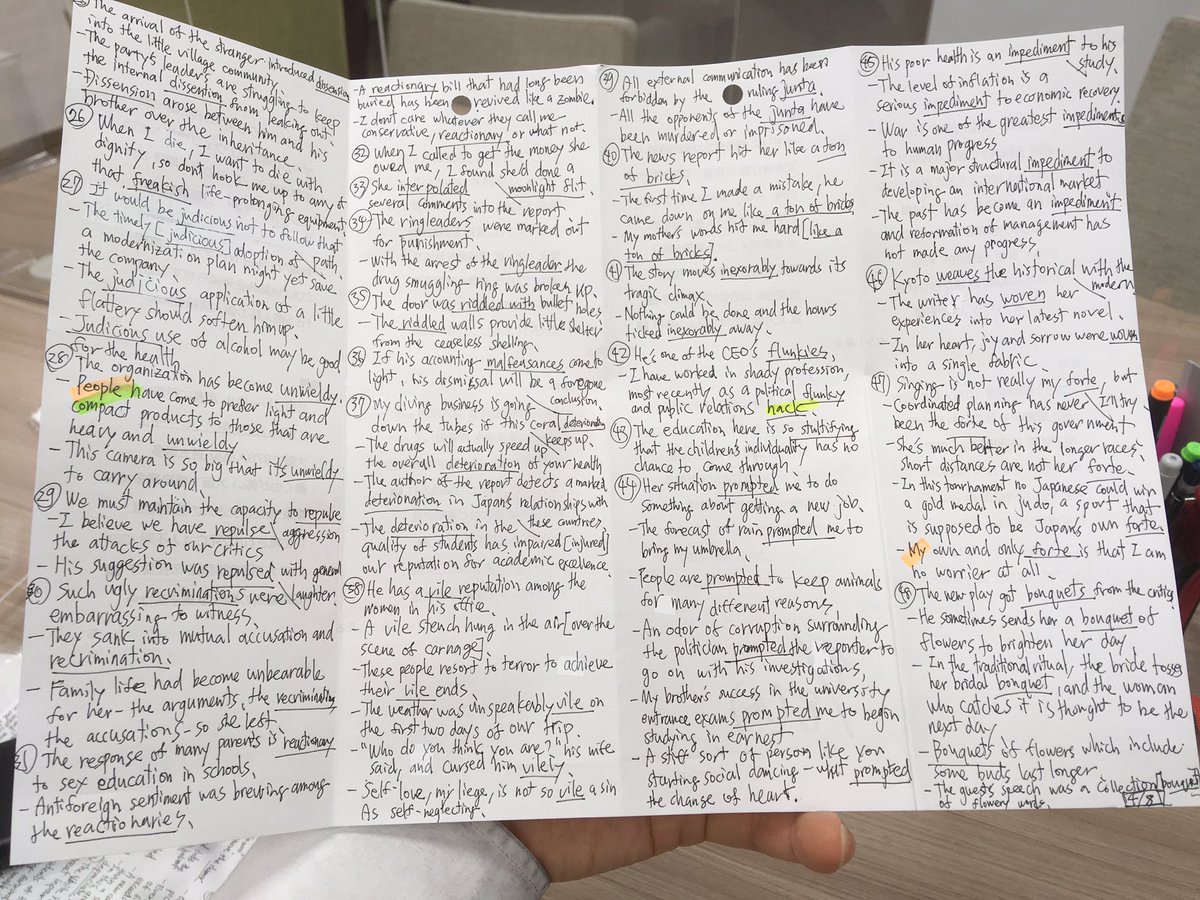 The arrival of the stranger introduced dissension
into the little village community.
- The party's leaders are struggling to keep
the internal dissention from leaking out.
- Dissension arose between him and his
brother over the inheritance.
㉖ When I die, I want to die with
dignity, so don't hook me up to any of
that freakish life-prolonging equipment
㉗ It would be judicious not to follow that
path.
- The timely [judicious] adoption of
a modernization plan might yet save
the company.
- The judicious application of a little
flattery should soften him up.
- Judicious use of alcohol may be good
for the health.
㉘ The organization has become unwieldy.
- People have come to prefer light and
compact products to those that are
heavy and unwieldy
- This camera is so big that it's unwieldy
to carry around.
㉙ We must maintain the capacity to repulse
aggression
- I believe we have repulse
the attacks of our critics
- His suggestion was repulsed with general
laughter.
㉚ Such ugly recriminations were
embarrassing to witness.
- They sank into mutual accusation and
recrimination.
- Family life had become unbearable
for her - the arguments, the recriminating
the accusations - so she left.
㉛ The response of many parents is reactionary
to sex education in schools.
- Antiforeign sentiment was brewing among
the reactionaries.
- A reactionary bill that had long been
buried has been revived like a zombie.
- I don't care whatever they call me
conservative, reactionary or what not.
㉜ When I called to get the money she
owed me, I found she'd done a
moonlight flit.
㉝ She interpolated
several comments into the report
㉞ The ringleaders were marked out
for punishment.
- With the arrest of the ringleader the
drug smuggling ring was broken up.
㉟ The door was riddled with bullet holes.
- The riddled walls provide little shelter
from the ceaseless shelling.
㊱ If his accounting malfeasances came to
light, his dismissal will be a foregone
conclusion.
㊲ My diving business is going
down the tubes if this coral deterioration
keeps up.
- The drugs will actually speed up
the overall deterioration of your health
- The author of the report detects a marked
deterioration in Japan's relationships with
these countries.
- The deterioration in the
quality of students has impaired [injured]
our reputation for academic excellence.
㊳ He has a vile reputation among the
women in his office.
- A vile stench hung in the air [over the
scene of carnage].
- These people resort to terror to achieve
their vile ends.
- The weather was unspeakably vile on
the first two days of our trip.
- "Who do you think you are?" his wife
said, and cursed him vilely.
- Self-love, my liege, is not so vile a sin
As self-neglecting.
㊴ All external communication has been
forbidden by the ruling junta.
- All the opponents of the junta have
been murdered or imprisoned.
㊵ The news report hit her like a ton
of bricks.
- The first time I made a mistake, he
came down on me like a ton of bricks
- My mother's words hit me hard [like a
ton of bricks].
㊶ The story moves inexorably towards its
tragic climax.
- Nothing could be done and the hours
ticked inexorably away.
㊷ He's one of the CEO's flunkies.
- I have worked in shady profession,
most recently as a political flunky
and public relations hack
㊸ The education here is so stultifying
that the children's individuality has no
chance to come through.
㊹ Her situation prompted me to do
something about getting a new job.
- The forecast of rain prompted me to
bring my umbrella.
- People are prompted to keep animals
for many different reasons.
- An odor of corruption surrounding
the politician prompted the reporter to
go on with his investigations,
- My brother's success in the university
entrance exams prompted me to begin
studying in earnest
- A stiff sort of person like you
starting social dancing - what prompted
the change of heart.
㊺ His poor health is an impediment to his
study.
- The level of inflation is a
serious impediment to economic recovery.
- War is one of the greatest impediments
to human progress
- It is a major structural impediment to
developing an international market
- The past has become an impediment
and reformation of management has
not made any progress.
㊻ Kyoto weaves the historical with the
modern
- The writer has woven her
experiences into her latest novel.
- In her heart, joy and sorrow were woven
into a single fabric.
㊼ Singing is not really my forte, but
I'll try
- Coordinated planning has never
been the forte of this government
- She's much better in the longer races;
short distances are not her forte.
- In this tournament no Japanese could win
a gold medal in judo, a sport that
is supposed to be Japan's own forte.
- My own and only forte is that I am
no worrier at all.
㊽ The new play got bouquets from the critics
- He sometimes sends her a bouquet of
flowers to brighten her day
- In the traditional ritual, the bride tosses
her bridal bouquet, and the woman
who catches it is thought to be the
next day
- Bouquets of flowers which include
some buds last longer
- The guest's speech was a collection [bouquet]
of flowery words.
4/8